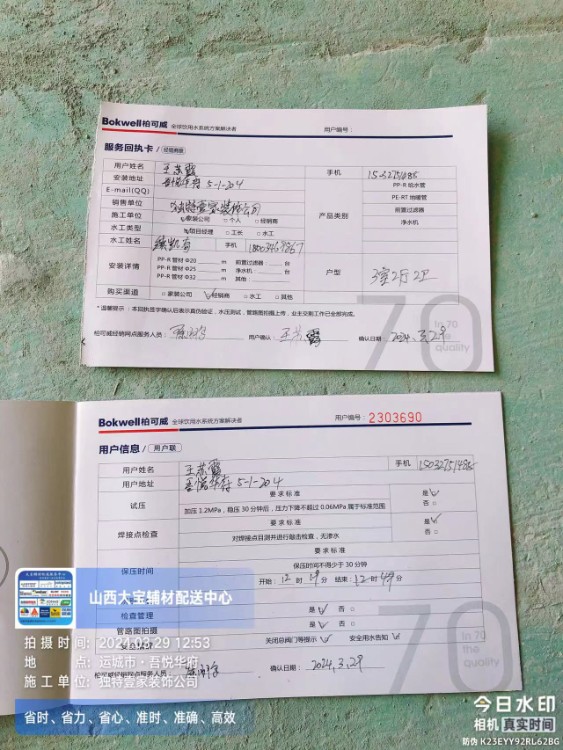 Bokwell柏可威 全球饮用水系统方案解决者
用户编号：
服务回执卡 / 经销商联
用户姓名 王苏霞 手机
安装地址 吾悦华府 5-1-204
E-mail(QQ)
销售单位 独特壹家装饰公司
产品类别 PP-R 给水管 PE-RT 地暖管 前置过滤器 净水机
施工单位 ☑家装公司 □个人 □经销商
水工类型 ☑项目经理 □工长 □水工
水工姓名 手机
安装详情 户型 3室2厅2卫
PP-R 管材 Φ20 m 前置过滤器： 台
PP-R 管材 Φ25 m 净水机： 台
PP-R 管材 Φ32 m 其他
购买渠道 □家装公司 ☑经销商 □水工 □其他
*温馨提示：本回执签字确认后表示直伪验证，水压测试，管路图拍摄上传，业主交割工作已全部完成。
柏可威经销网点服务人员： 用户确认： 王苏霞 确认日期： 2024.3.29
70
In 70
the
quality
Bokwell柏可威 全球饮用水系统方案解决者
用户编号：2303690
用户信息 / 用户联
用户姓名 王苏霞 手机
用户地址 吾悦华府 5-1-204
试压 要求标准 是☑
加压 1.2MPa，稳压 30 分钟后，压力下降不超过 0.06MPa 属于标准范围 否□
焊接点检查 要求标准 是☑
对焊接点目测并进行敲击检查，无渗水 否□
保压时间 要求标准
保压时间不得少于 30 分钟
开始：12 时 19 分 结束：12 时 49 分
检查管理 是☑ 否□
管路图拍摄 是☑ 否□
关闭总阀门等提示 ☑ 安全用水告知 ☑
柏可威经销网点服务人员： 确认日期： 2024.3.29
70
In 70
the
quality
山西大宝辅材配送中心
拍摄时间: 2024-03-29 12:53
地点: 运城市·吾悦华府
施工单位: 独特壹家装饰公司
省时、省力、省心、准时、准确、高效
今日水印
相机 真实时间
防伪 K23EYY92RL62BG